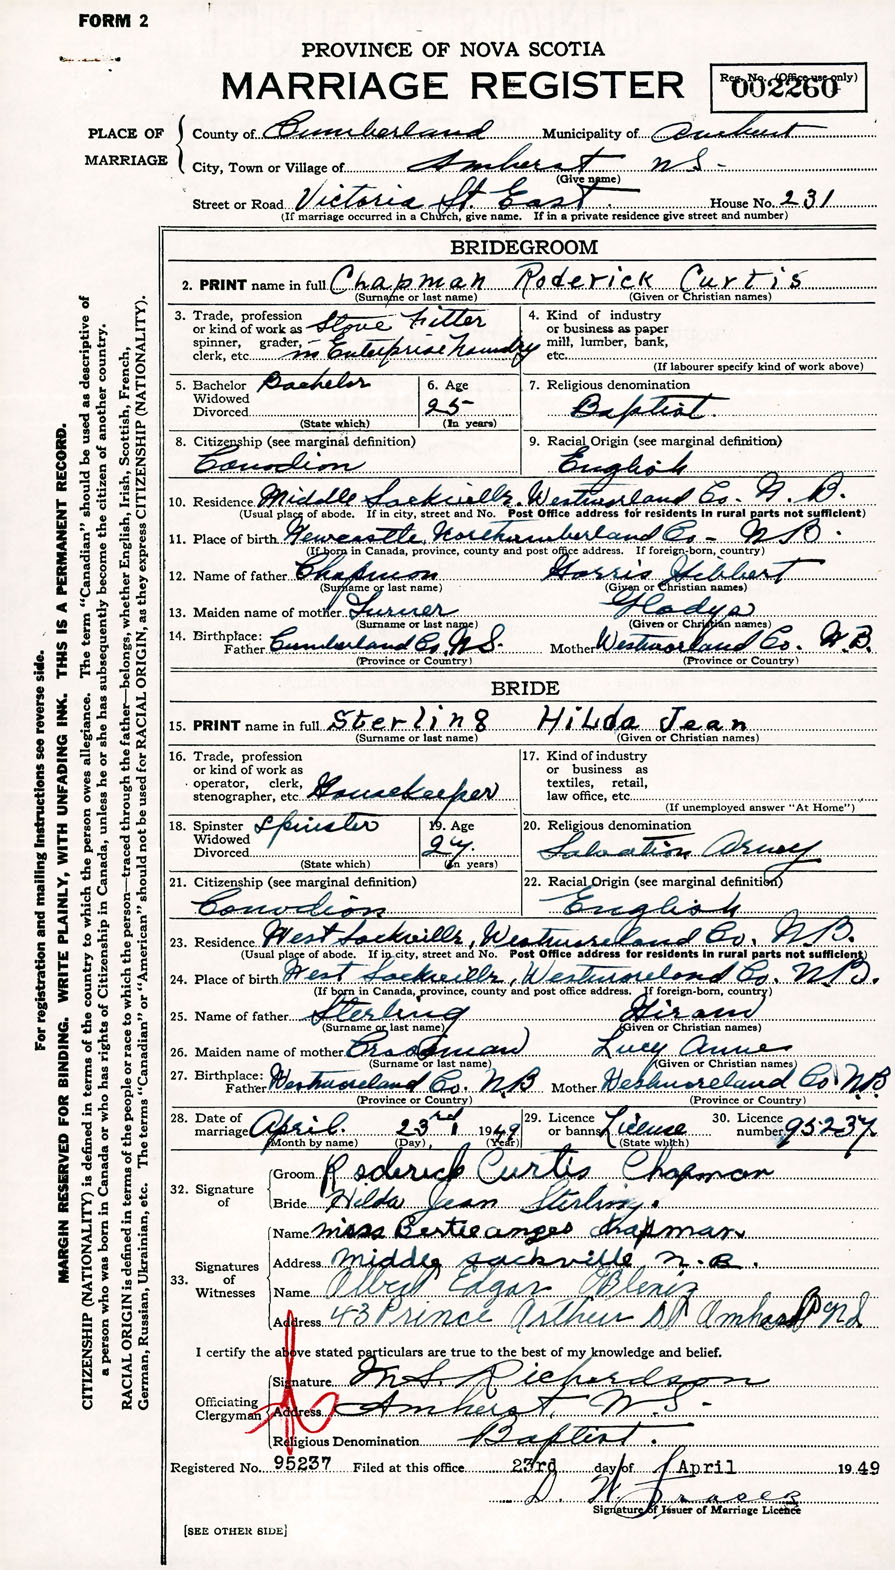 FORM 2
PROVINCE OF NOVA SCOTIA
MARRIAGE REGISTER
Reg. No. (Office use only)
002260
PLACE OF MARRIAGE
County of Cumberland Municipality of Amherst
City, Town or Village of Amherst N S-
(Give name)
Street or Road Victoria St. East. House No. 231
(If marriage occurred in a Church, give name. If in a private residence give street and number)
BRIDEGROOM
2. PRINT name in full Chapman Roderick Curtis
(Surname or last name) (Given or Christian names)
3. Trade, profession or kind of work as spinner, grader, clerk, etc. Stove Fitter in Enterprise Foundry
4. Kind of industry or business as paper mill, lumber, bank, etc.
(If labourer specify kind of work above)
5. Bachelor Widowed Divorced Bachelor
(State which)
6. Age 25
(In years)
7. Religious denomination
Baptist.
8. Citizenship (see marginal definition)
Canadian
9. Racial Origin (see marginal definition)
English
10. Residence Middle Sackville, Westmorland Co- N. B.
(Usual place of abode. If in city, street and No. Post Office address for residents in rural parts not sufficient)
11. Place of birth Newcastle, Northumberland Co- N B.
(If born in Canada, province, county and post office address. If foreign-born, country)
12. Name of father Chapman Harris Hibbert
(Surname or last name) (Given or Christian names)
13. Maiden name of mother Turner Gladys
(Surname or last name) (Given or Christian names)
14. Birthplace: Father Cumberland Co, N.S. Mother Westmorland Co. N.B.
(Province or Country) (Province or Country)
BRIDE
15. PRINT name in full Sterling Hilda Jean
(Surname or last name) (Given or Christian names)
16. Trade, profession or kind of work as operator, clerk, stenographer, etc. Housekeeper
17. Kind of industry or business as textiles, retail, law office, etc.
(If unemployed answer "At Home")
18. Spinster Widowed Divorced Spinster
(State which)
19. Age 24.
(In years)
20. Religious denomination
Salvation Army
21. Citizenship (see marginal definition)
Canadian
22. Racial Origin (see marginal definition)
English
23. Residence West Sackville, Westmoreland Co, N.B.
(Usual place of abode. If in city, street and No. Post Office address for residents in rural parts not sufficient)
24. Place of birth West Sackville, Westmoreland Co. N.B.
(If born in Canada, province, county and post office address. If foreign-born, country)
25. Name of father Sterling Hiram
(Surname or last name) (Given or Christian names)
26. Maiden name of mother Crossman Lucy Annes
(Surname or last name) (Given or Christian names)
27. Birthplace: Father Westmoreland Co. N.B Mother Westmoreland Co N.B
(Province or Country) (Province or Country)
28. Date of marriage April. 23rd 1949
(Month by name) (Day) (Year)
29. Licence or banns License
(State which)
30. Licence number 95237.
32. Signature of
Groom Roderick Curtis Chapman
Bride Hilda Jean Sterling.
33. Signatures of Witnesses
Name Miss Bertie anges Chapman
Address Middle Sackville, N.B.
Name Albert Edgar OBlenis
Address 43 Prince Arthur St Amherst NS
I certify the above stated particulars are true to the best of my knowledge and belief.
Officiating Clergyman
Signature M S. Richardson
Address Amherst, N.S.-
Religious Denomination Baptist.
Registered No. 95237 Filed at this office 23rd day of April 1949
D. W. Fraser
Signature of Issuer of Marriage Licence
[SEE OTHER SIDE]
For registration and mailing Instructions see reverse side.
MARGIN RESERVED FOR BINDING. WRITE PLAINLY, WITH UNFADING INK. THIS IS A PERMANENT RECORD.
CITIZENSHIP (NATIONALITY) is defined in terms of the country to which the person owes allegiance. The term "Canadian" should be used as descriptive of
a person who was born in Canada or who has rights of Citizenship in Canada, unless he or she has subsequently become the citizen of another country.
RACIAL ORIGIN is defined in terms of the people or race to which the person—traced through the father—belongs, whether English, Irish, Scottish, French,
German, Russian, Ukrainian, etc. The terms "Canadian" or "American" should not be used for RACIAL ORIGIN, as they express CITIZENSHIP (NATIONALITY).